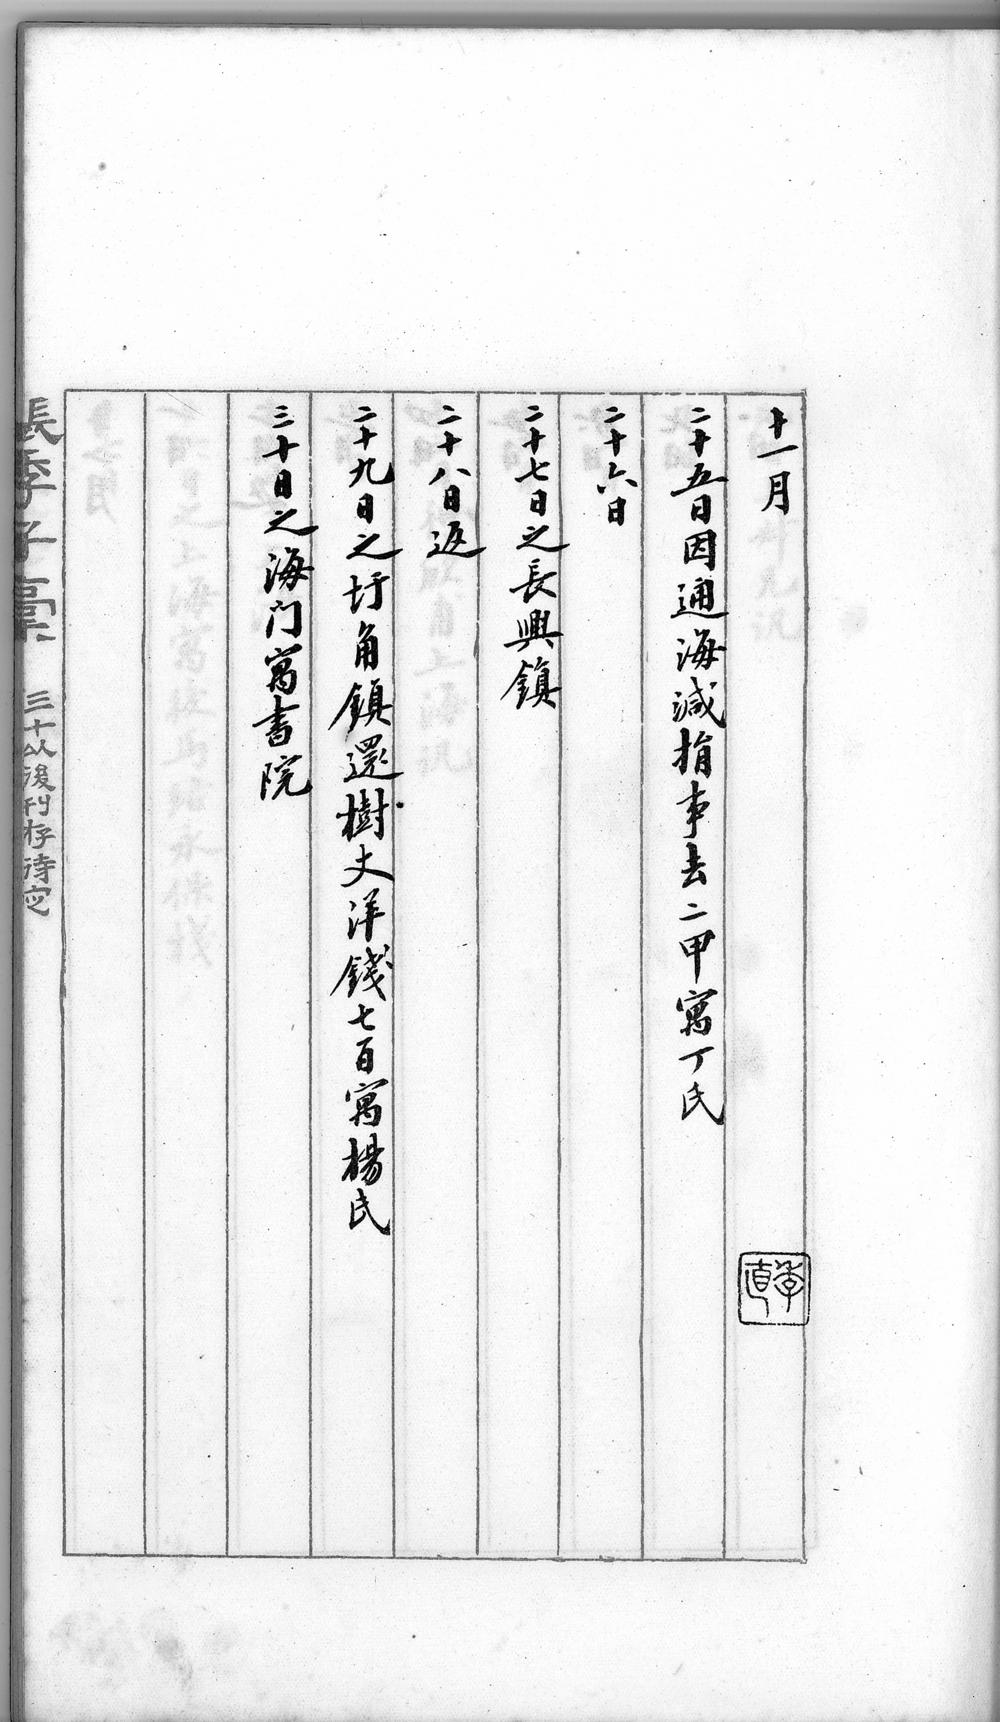 十一月
季直
二十五日因通海減捐事去二甲寓丁氏
二十六日
二十七日之長興鎮
二十八日返
二十九日之圩角鎮還樹丈洋錢七百寓楊氏
三十日之海门寓書院
張季子稾 三十以後刊存待定